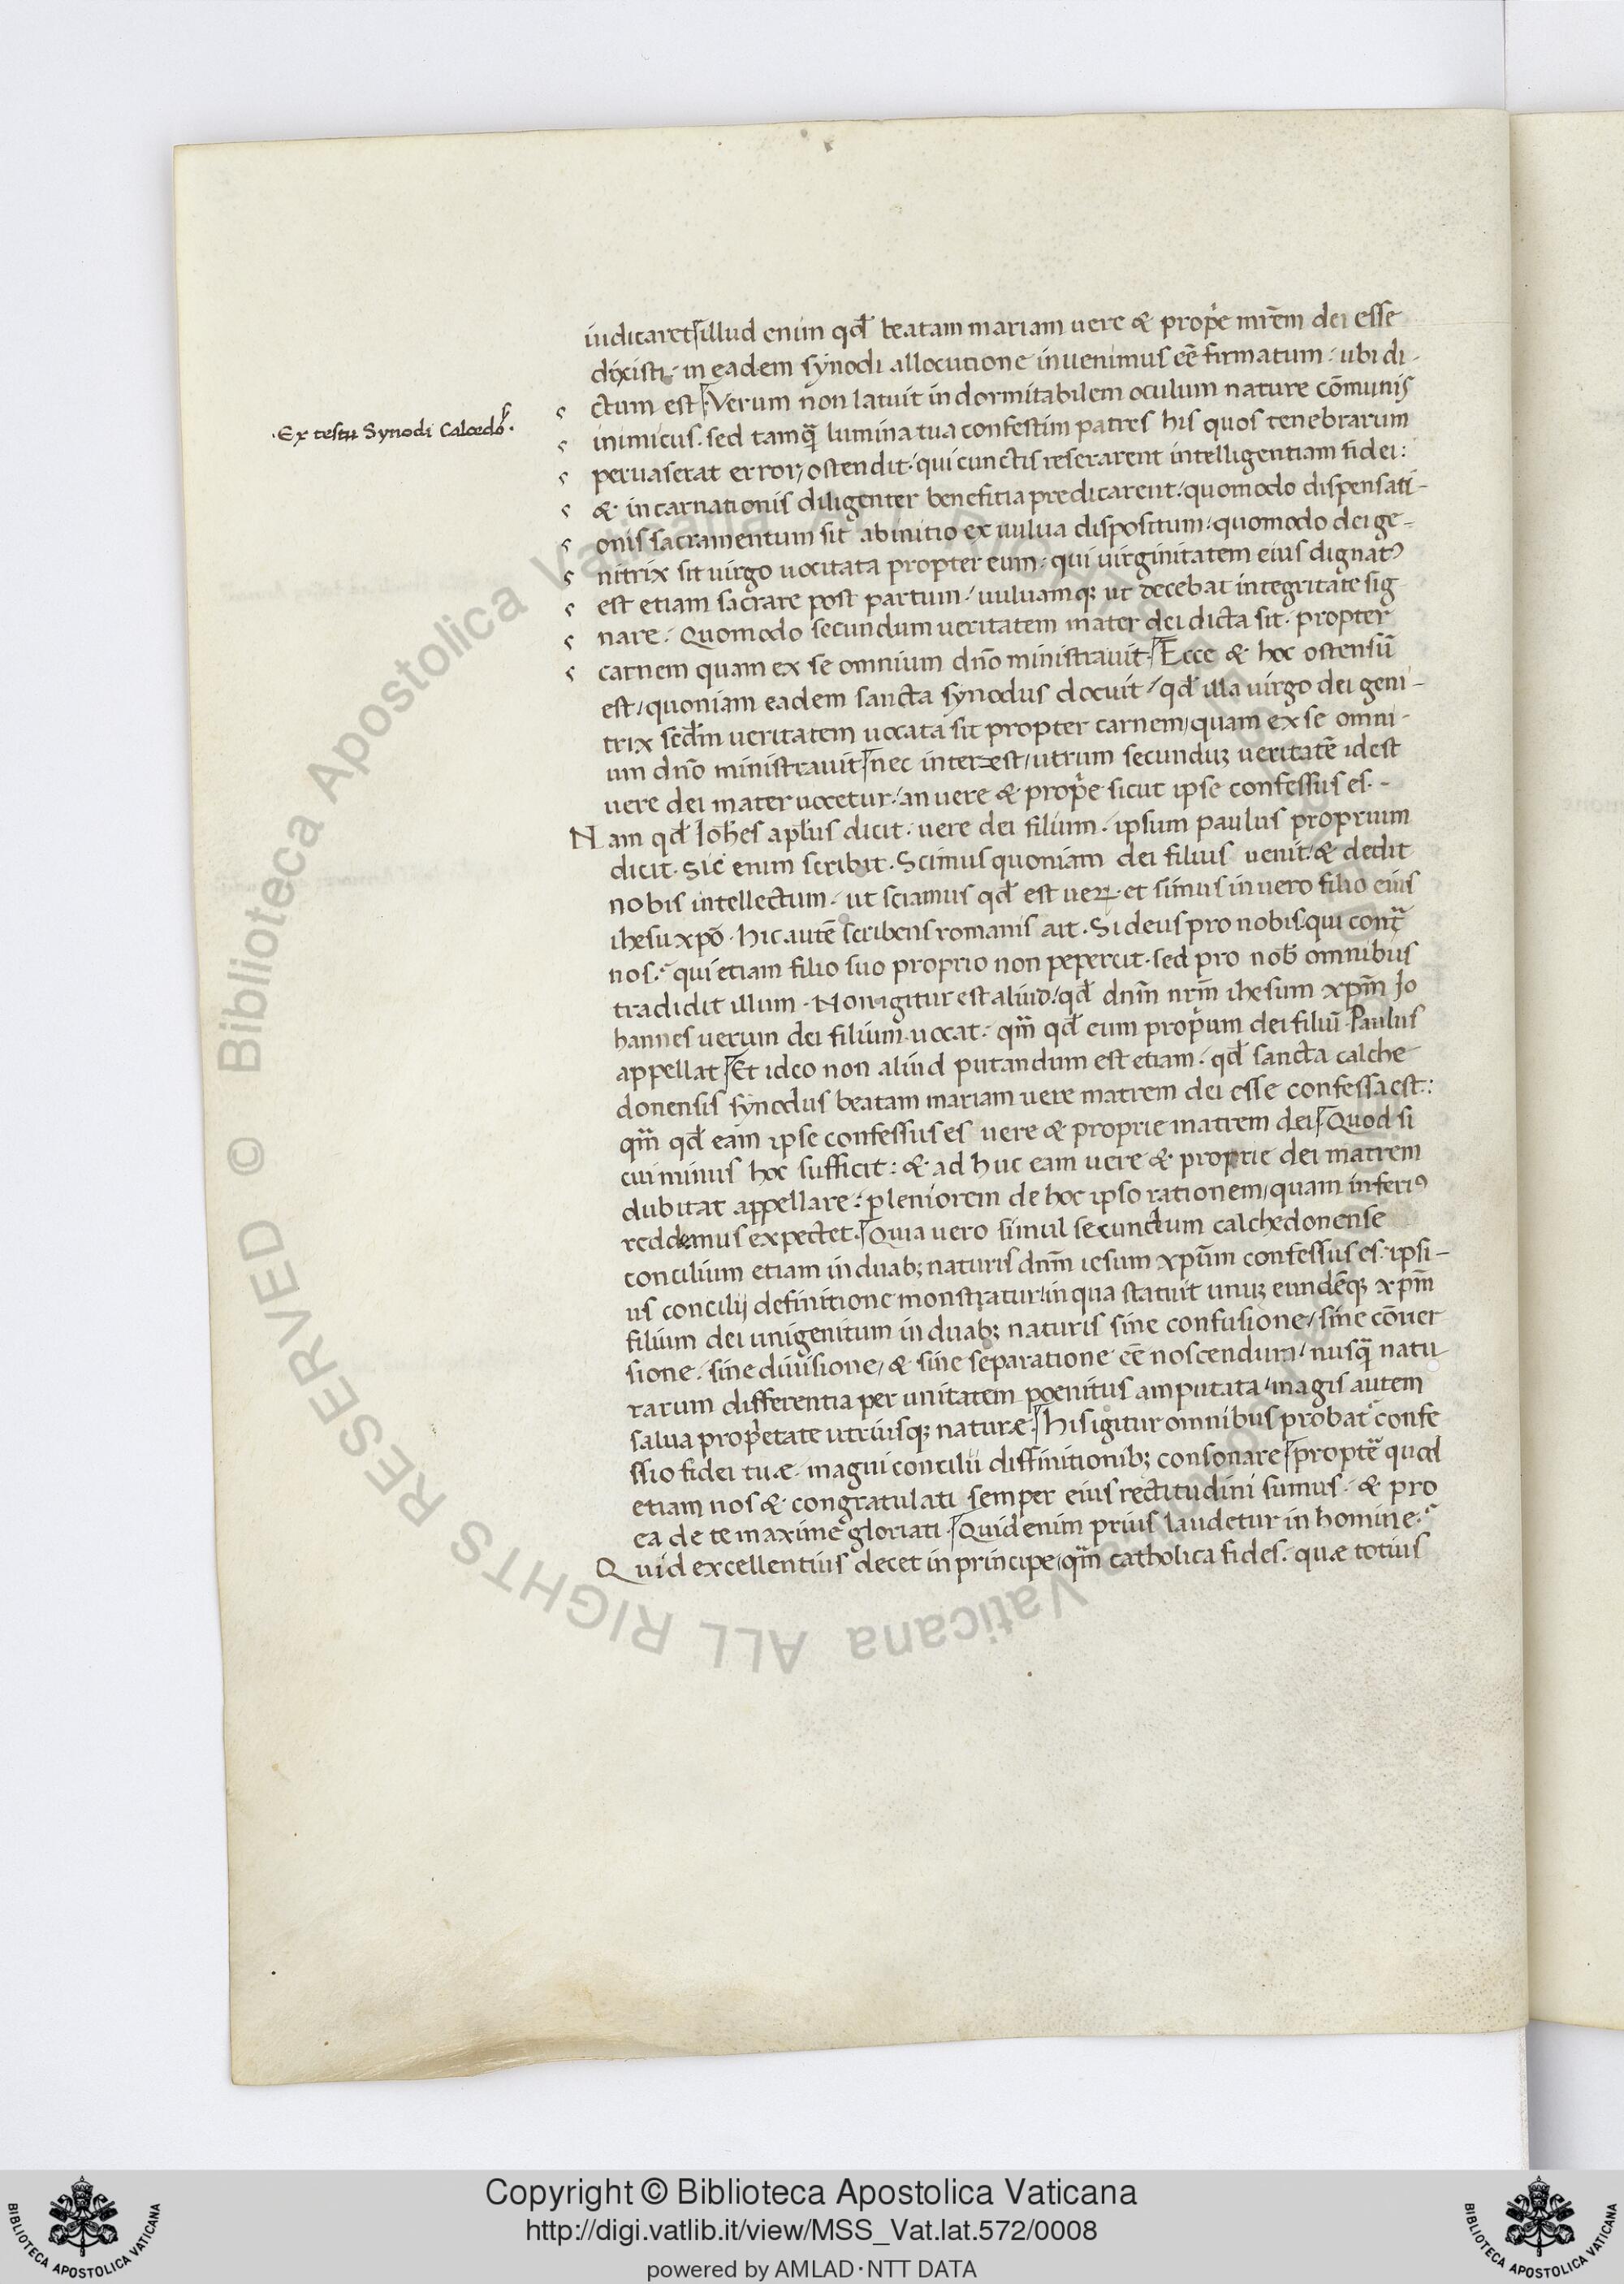 iudicaret illud enim qđ beatam mariam uere & prop̍e mr̄em dei esse
dixisti· in eadem synodi allocutione inuenimus eē firmatum· ubi di-
ctum est Verum non latuit indormitabilem oculum nature cōmunis
·Ex testu Synodi Calcedo·
inimicus· sed tamq̄ lumina tua confestim patres his quos tenebrarum
peruaserat error/ ostendit· qui cunctis reserarent intelligentiam fidei:
& incarnationis diligenter benefitia predicarent· quomodo dispensati-
onis sacramentum sit abinitio ex uulua dispositum· quomodo dei ge-
nitrix sit uirgo uocitata propter eum· qui uirginitatem eius dignatꝰ
est etiam sacrare post partum· uuluamqꝫ ut decebat integritate sig
nare· Quomodo secundum ueritatem mater dei dicta sit· propter
carnem quam ex se omnium dn̄o ministrauit· Ecce & hoc ostensū
est/ quoniam eadem sancta synodus docuit/ qđ illa uirgo dei geni-
trix secđm ueritatem uocata sit propter carnem/ quam ex se omni-
um dn̄o ministrauit nec interest/ utrum secunduꝫ ueritatē idest
uere dei mater uocetur/ an uere & prop̍e sicut ipse confessus es·-
Nam qđ Joh̄es apl̄us dicit· uere dei filium· ipsum paulus proprium
dicit· Sic enim scribit· Scimus quoniam dei filius uenit· & dedit
nobis intellectum· ut sciamus qđ est ueꝝ· et simus in uero filio eius
ihesu xp̄o· hic autē scribens romanis ait· Si deus pro nobis· qui contᷓ
nos· qui etiam filio suo proprio non pepercit· sed pro nob̄ omnibus
tradidit illum· Non igitur est aliud/ qđ dn̄m nr̄m ihesum xpm̄ Jo
hannes uerum dei filium uocat· qm̄ qđ eum prop̍um dei filiū Paulus
appellat Et ideo non aliud putandum est etiam· qđ sancta calche
donensis synodus beatam mariam uere matrem dei esse confessa est:
qm̄ qđ eam ipse confessus es uere & proprie matrem dei Quod si
cui minus hoc sufficit: & ad huc eam uere & proprie dei matrem
dubitat appellare: pleniorem de hoc ipso rationem/ quam inferiꝰ
reddemus expectet· Quia uero simul secundum calchedonense
concilium etiam in duabꝫ naturis dn̄m iesum xpūm confessus es· ipsi-
us concilij definitione monstratur/ in qua statuit unuꝫ eundēqꝫ xpm̄
filium dei unigenitum in duabꝫ naturis sine confusione/ sine cōuer
sione· sine diuisione/ & sine separatione eē noscendum/ nusq̄ natu-
rarum differentia per unitatem poenitus amputata/ magis autem
salua prop̍etate utriusqꝫ naturæ· his igitur omnibus probat᷑ confe
ssio fidei tuæ· magni concilii diffinitionibꝫ consonare proptē quod
etiam nos & congratulati semper eius rectitudini sumus· & pro
ea de te maxime gloriati· Quid enim prius laudetur in homine·
Quid excellentius decet in principe/ qm̄ catholica fides· quæ totius
Copyright © Biblioteca Apostolica Vaticana
http://digi.vatlib.it/view/MSS_Vat.lat.572/0008
powered by AMLAD·NTT DATA
BIBLIOTECA APOSTOLICA VATICANA
BIBLIOTECA APOSTOLICA VATICANA
© Biblioteca Apostolica Vaticana ALL RIGHTS RESERVED